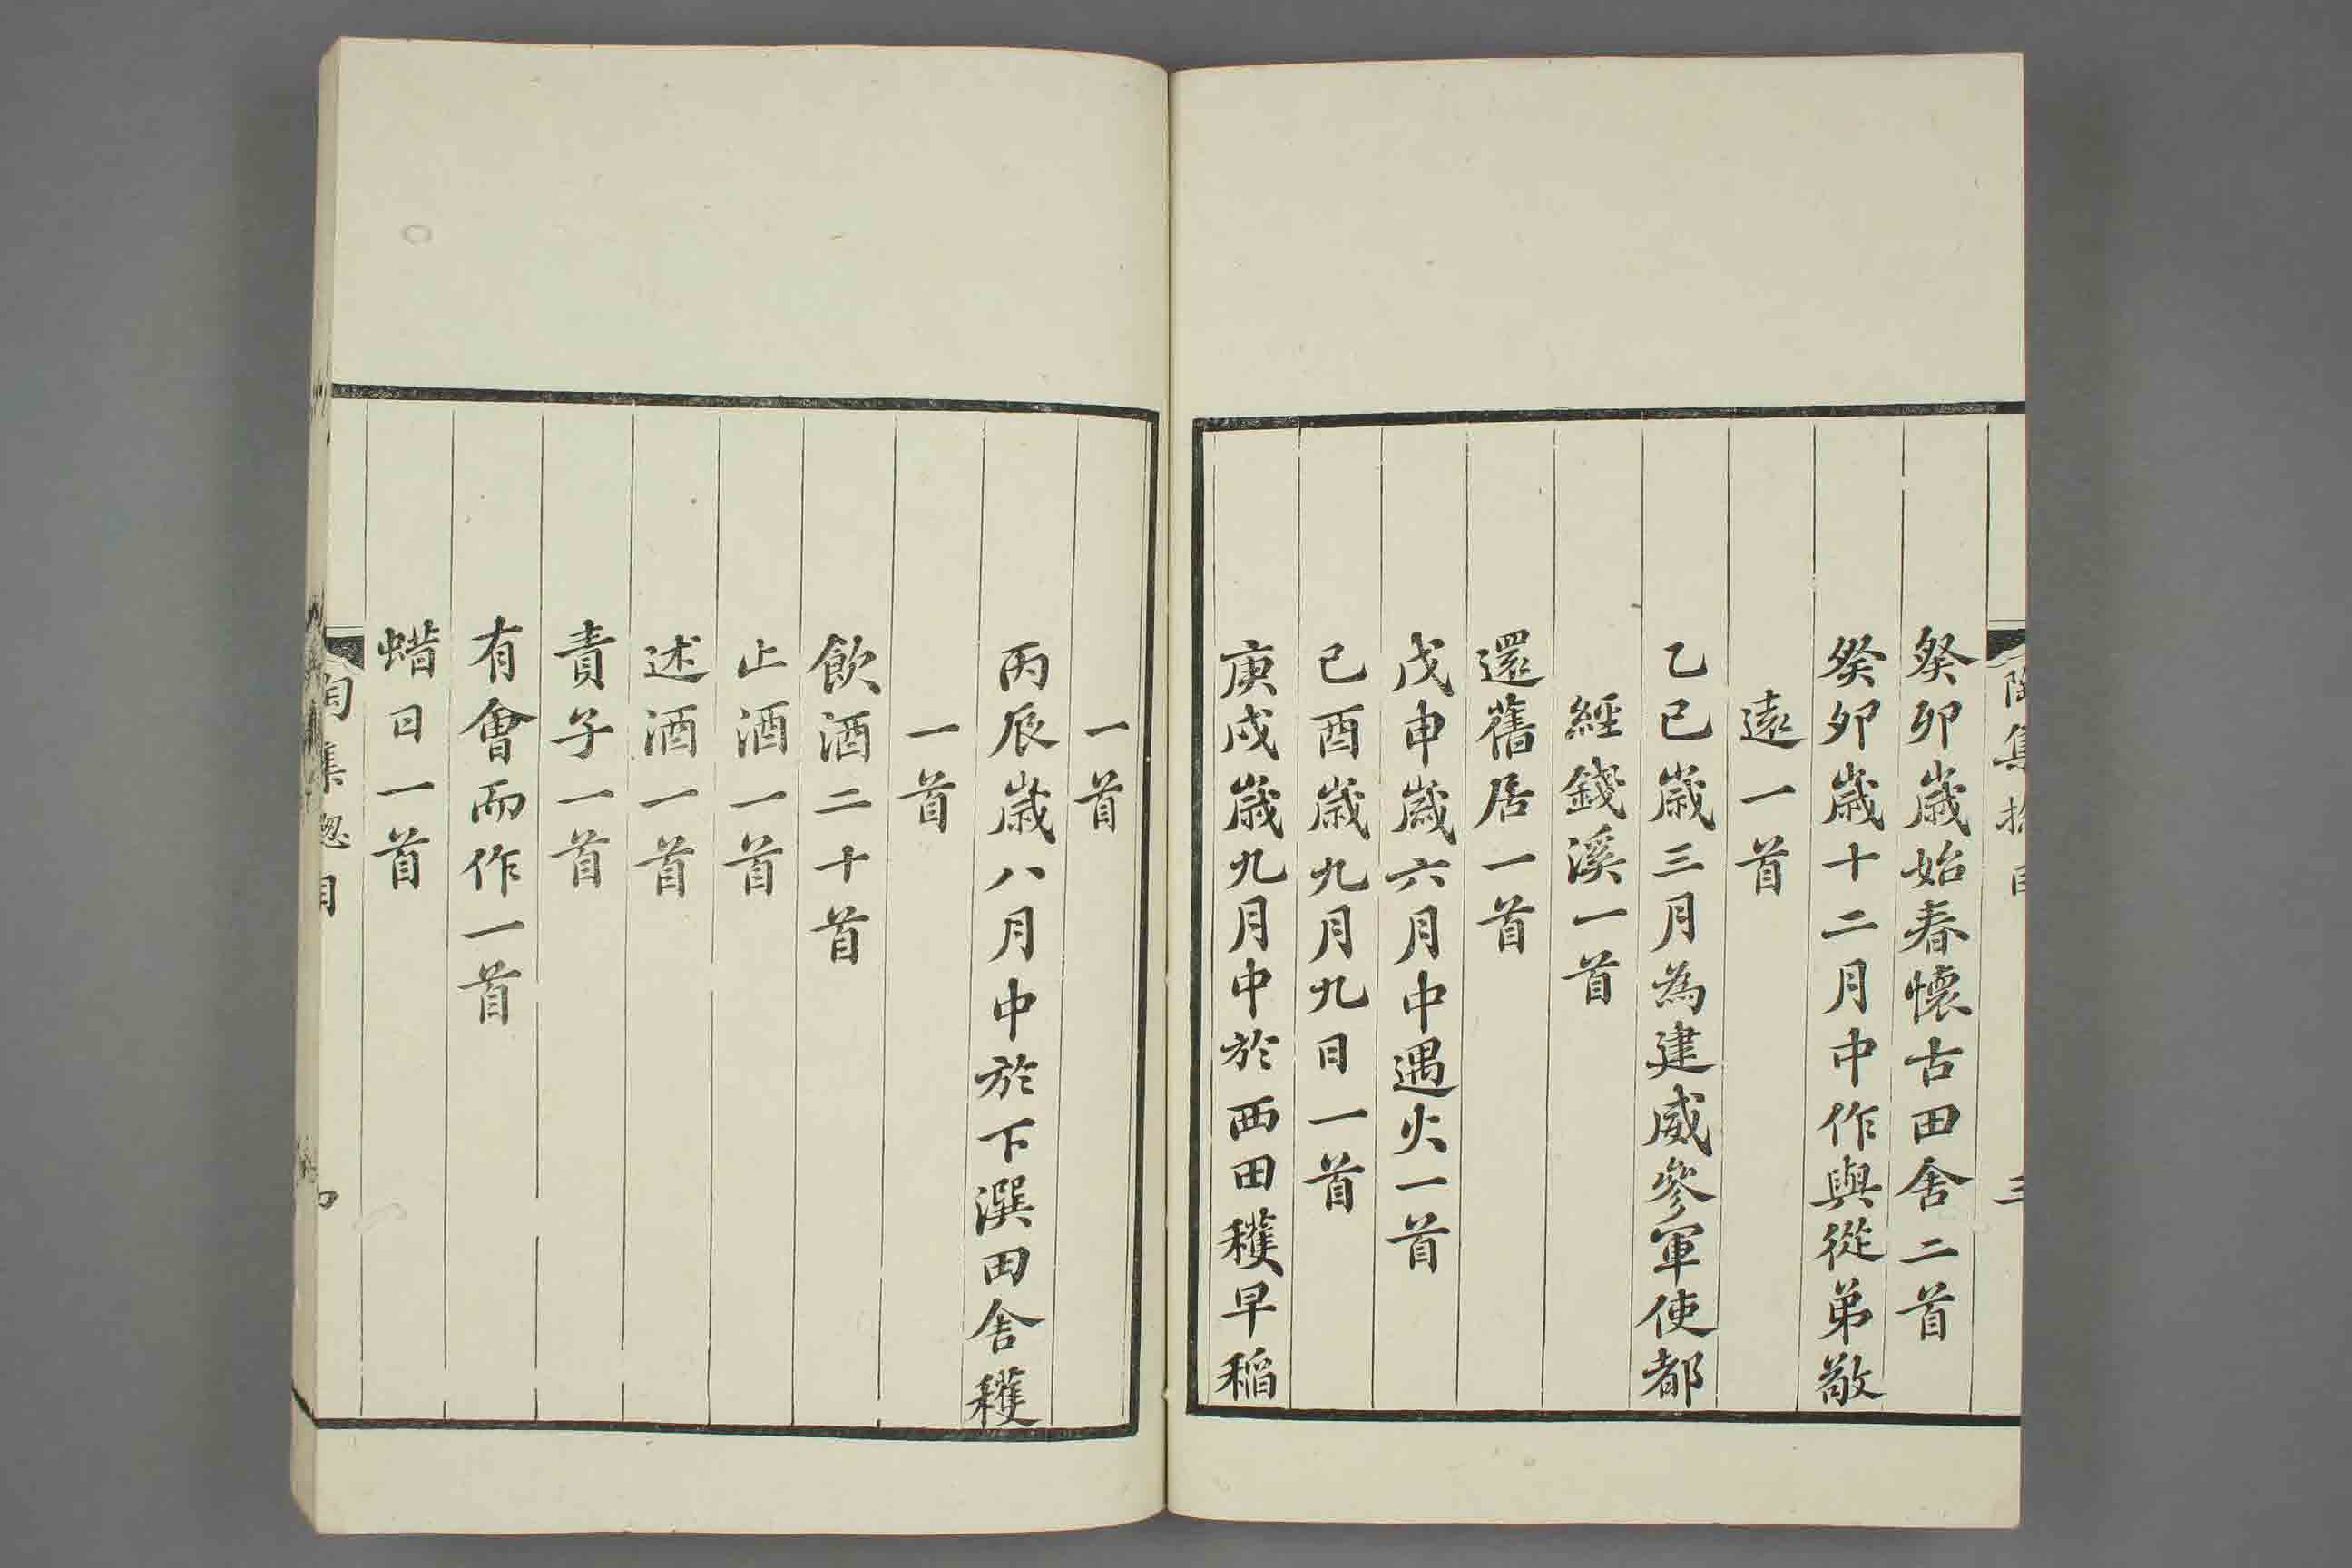 癸卯歲始春懷古田舍二首
癸卯歲十二月中作與從弟敬
遠一首
乙巳歲三月為建威參軍使都
經錢溪一首
還舊居一首
戊申歲六月中遇火一首
己酉歲九月九日一首
庚戌歲九月中於西田穫早稻
一首
丙辰歲八月中於下潠田舍穫
一首
飲酒二十首
止酒一首
述酒一首
責子一首
有會而作一首
蜡日一首
陶集總目